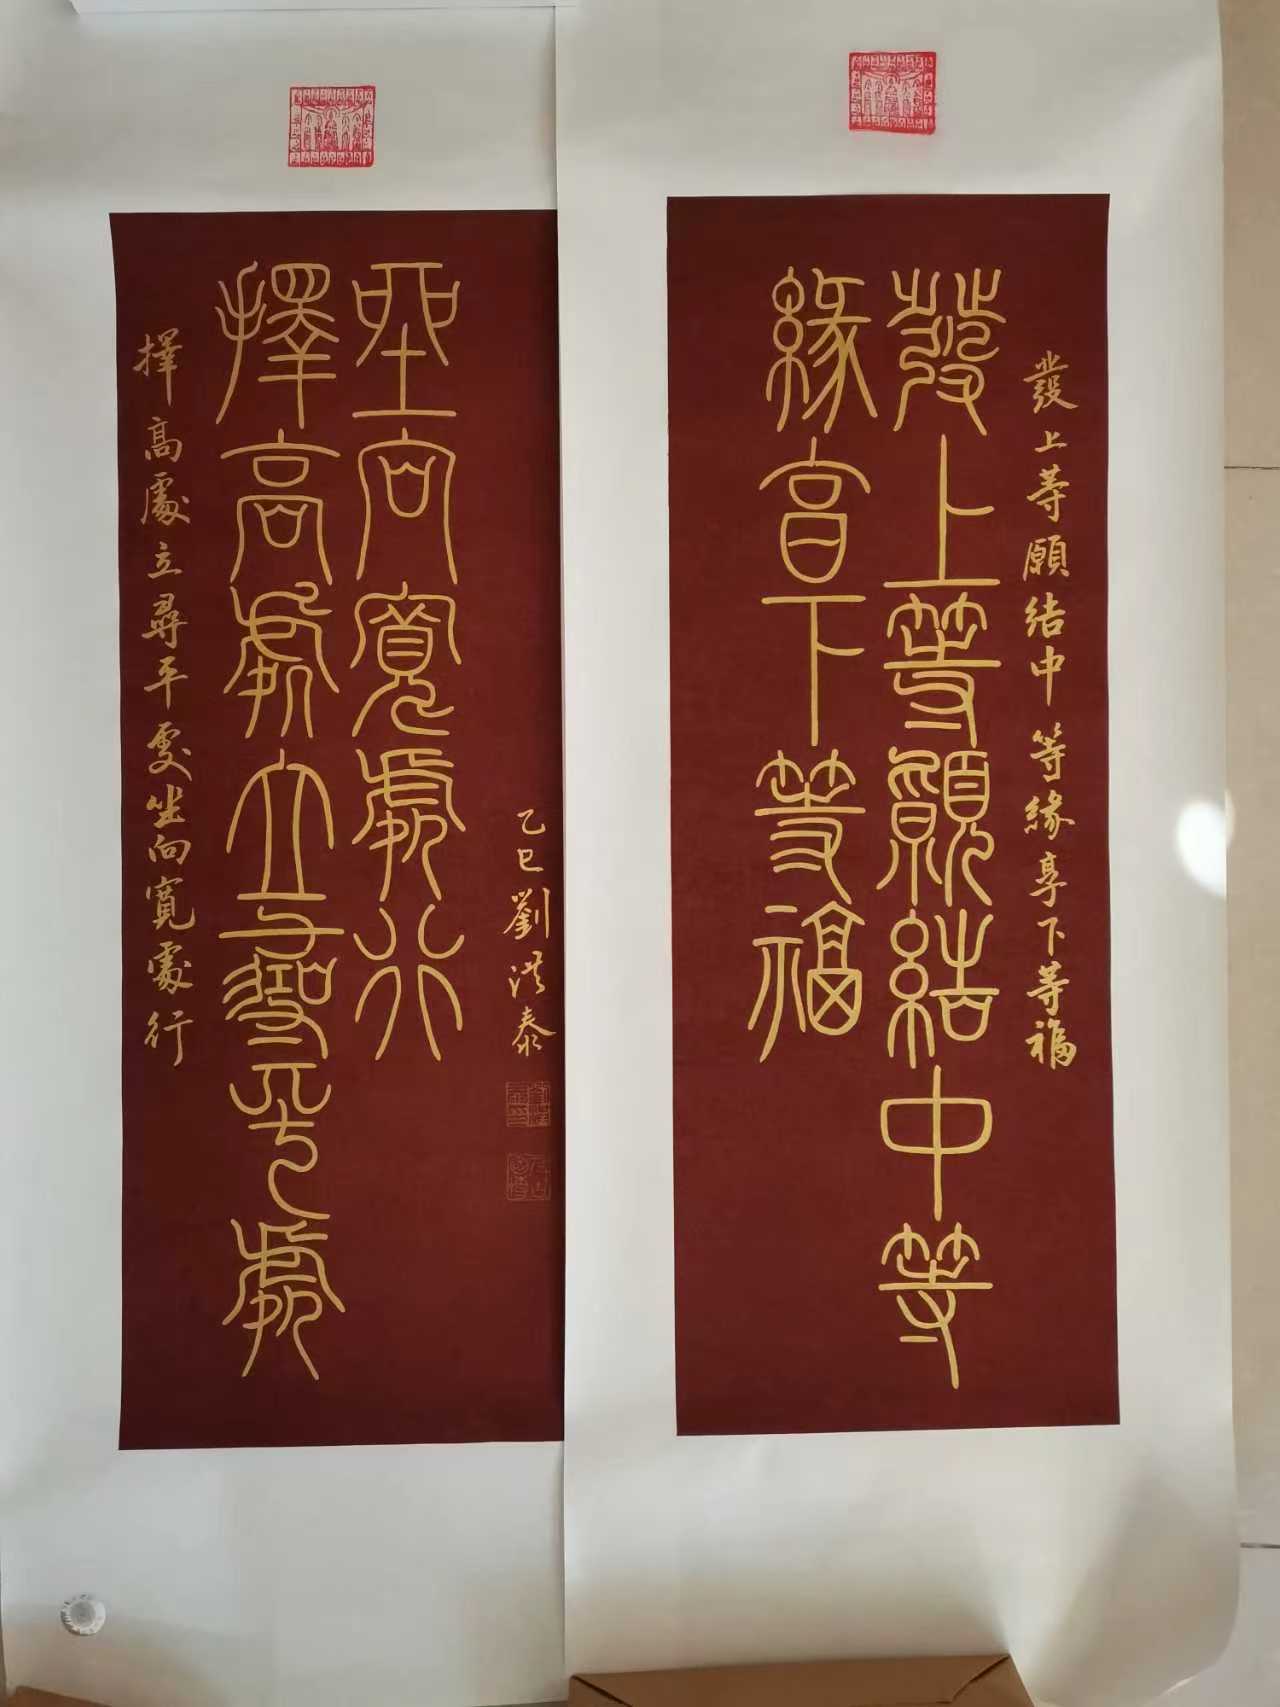 發上等願結中等緣享下等福
發上等願結中等
緣享下等福
擇高處立尋平處坐向寬處行
擇高處立尋平處
坐向寬處行
乙巳劉洪泰